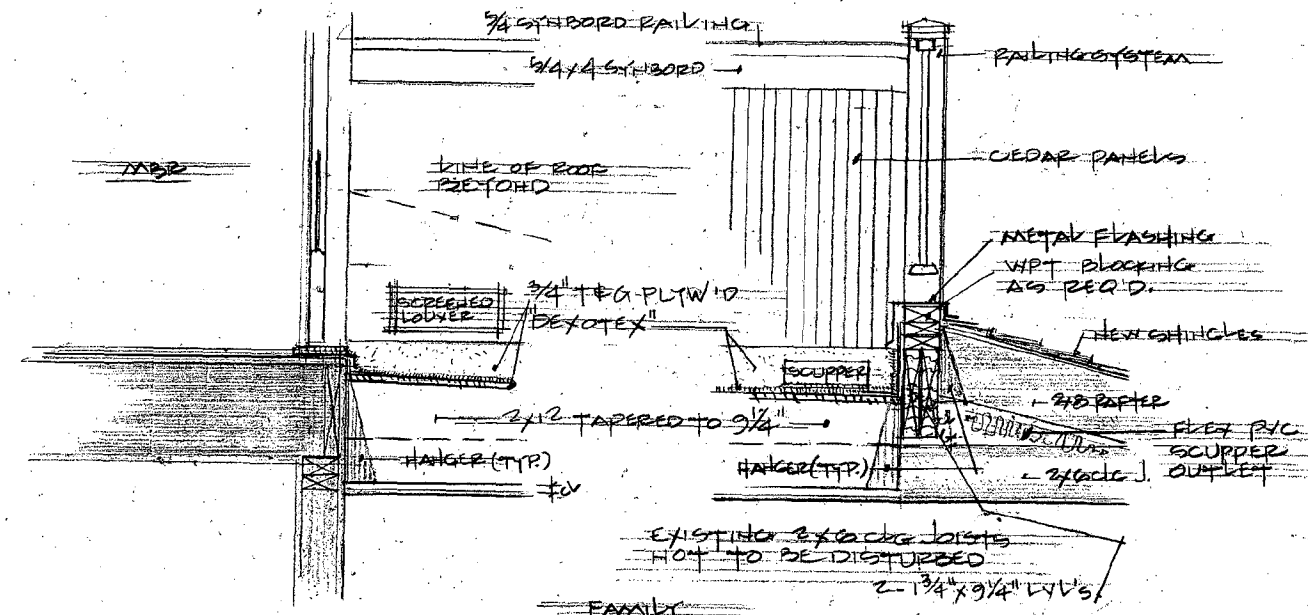 5/4 SYNBORD RAILING
5/4 X 4 SYNBORD
RAILING SYSTEM
MBR
LINE OF ROOF
BEYOND
CEDAR PANELS
METAL FLASHING
WPT BLOCKING
AS REQ'D.
SCREENED
LOUVER
3/4" T&G PLYW'D
"DEXOTEX"
NEW SHINGLES
SCUPPER
2X8 RAFTER
2X12 TAPERED TO 9 1/4"
FLEX PVC
SCUPPER
OUTLET
HANGER (TYP.)
HANGER (TYP.)
2X6 CLG J.
EXISTING 2X6 CLG JOISTS
NOT TO BE DISTURBED
2-1 3/4" X 9 1/4" LVL'S
FAMILY